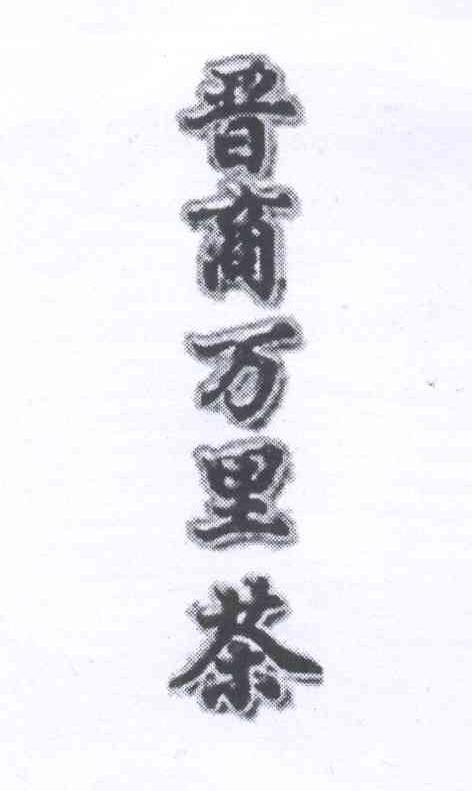 晋商万里茶